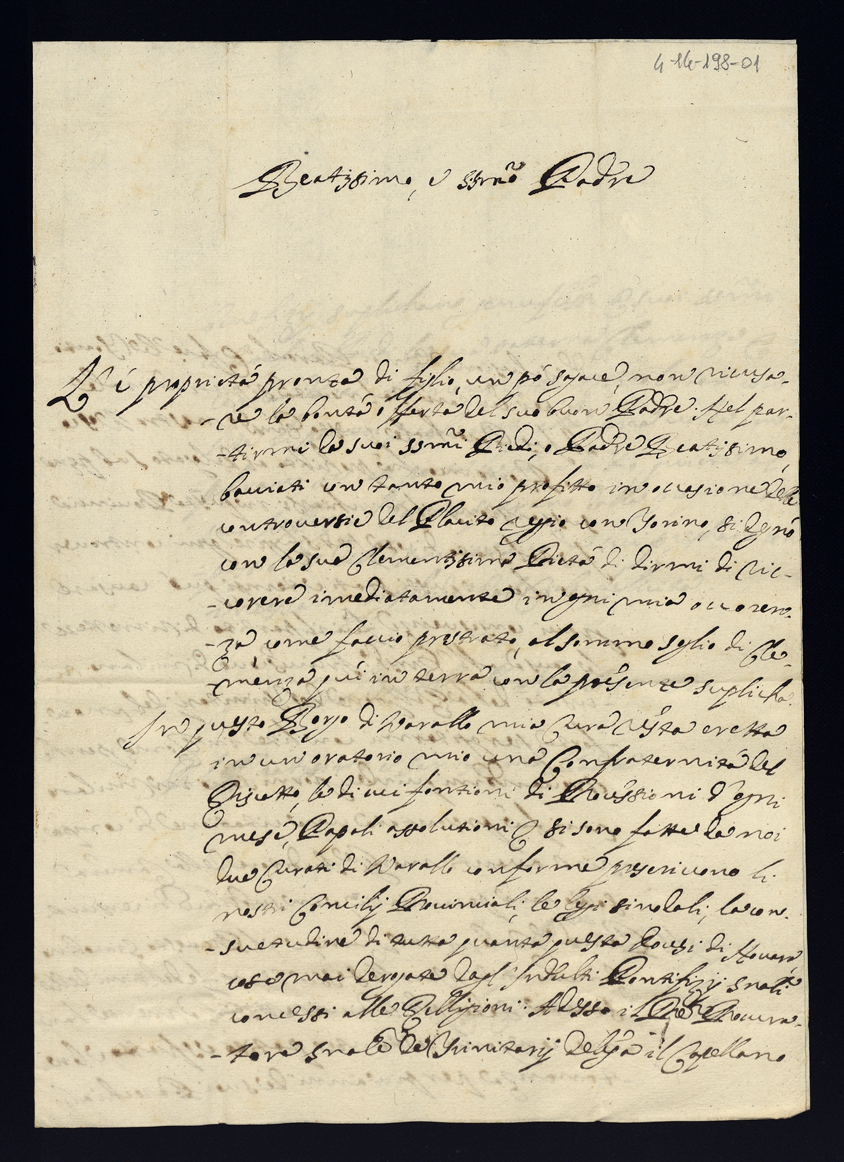 4-14-198-01
Beatissimo, e SSmo Padre
È proprietà pronta di figlio, un pò sagace, non ricusa-
-re la bontà offerta del suo buon Padre. Nel par-
-tirmi da suoi SSmi Piedi, o Padre Beatissimo,
bacciati con tanto mio profitto in occasione delle
controversie del Placito regio con Torino, si degnò
con la sua Clementissima Pietà di dirmi di ric-
-corere imediatamente in ogni mia occoren-
-za come faccio prostrato, al sommo soglio di Cle-
-menza quì in terra con la presente suplicha.
In questo Borgo di Varallo mia Cura resta eretta
in un oratorio mio una Confraternità del
Riscatto, le di cui fontioni di Processioni d'ogni
mese, Papali assolutioni &c si sono fatte da noi
due Curati di Varallo conforme prescrivono li
nostri Concilij Provinciali, le leggi sinodali, la con-
-suetudine di tutta quanta questa Diocesi di Novara
cose mai derogate dagl'Indulti Pontifizij
concessi alle Religioni. Adesso il Pre Procura-
-tore de Trinitarij delega il Capellano